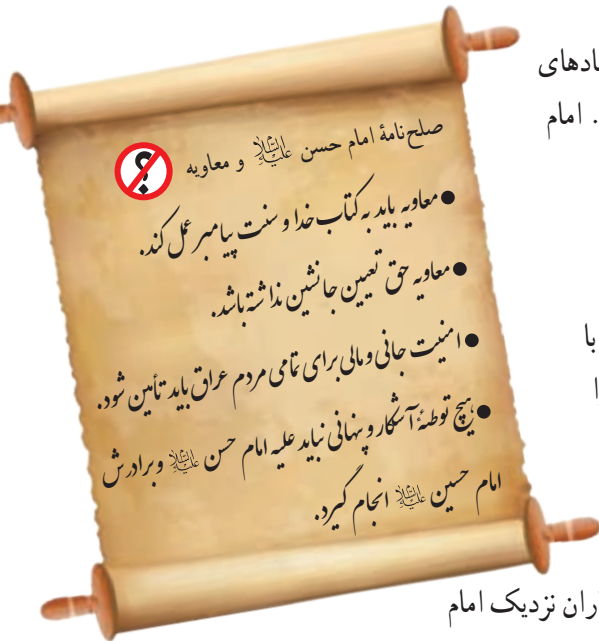 ادهای
. امام
صلح‌نامهٔ امام حسن علیه‌السلام و معاویه
● معاویه باید به کتاب خدا و سنت پیامبر عمل کند.
● معاویه حق تعیین جانشین نداشته باشد.
● امنیت جانی و مالی برای تمامی مردم عراق باید تأمین شود.
● هیچ توطئهٔ آشکار و پنهانی نباید علیه امام حسن علیه‌السلام و برادرش
امام حسین علیه‌السلام انجام گیرد.
با
ا
اران نزدیک امام